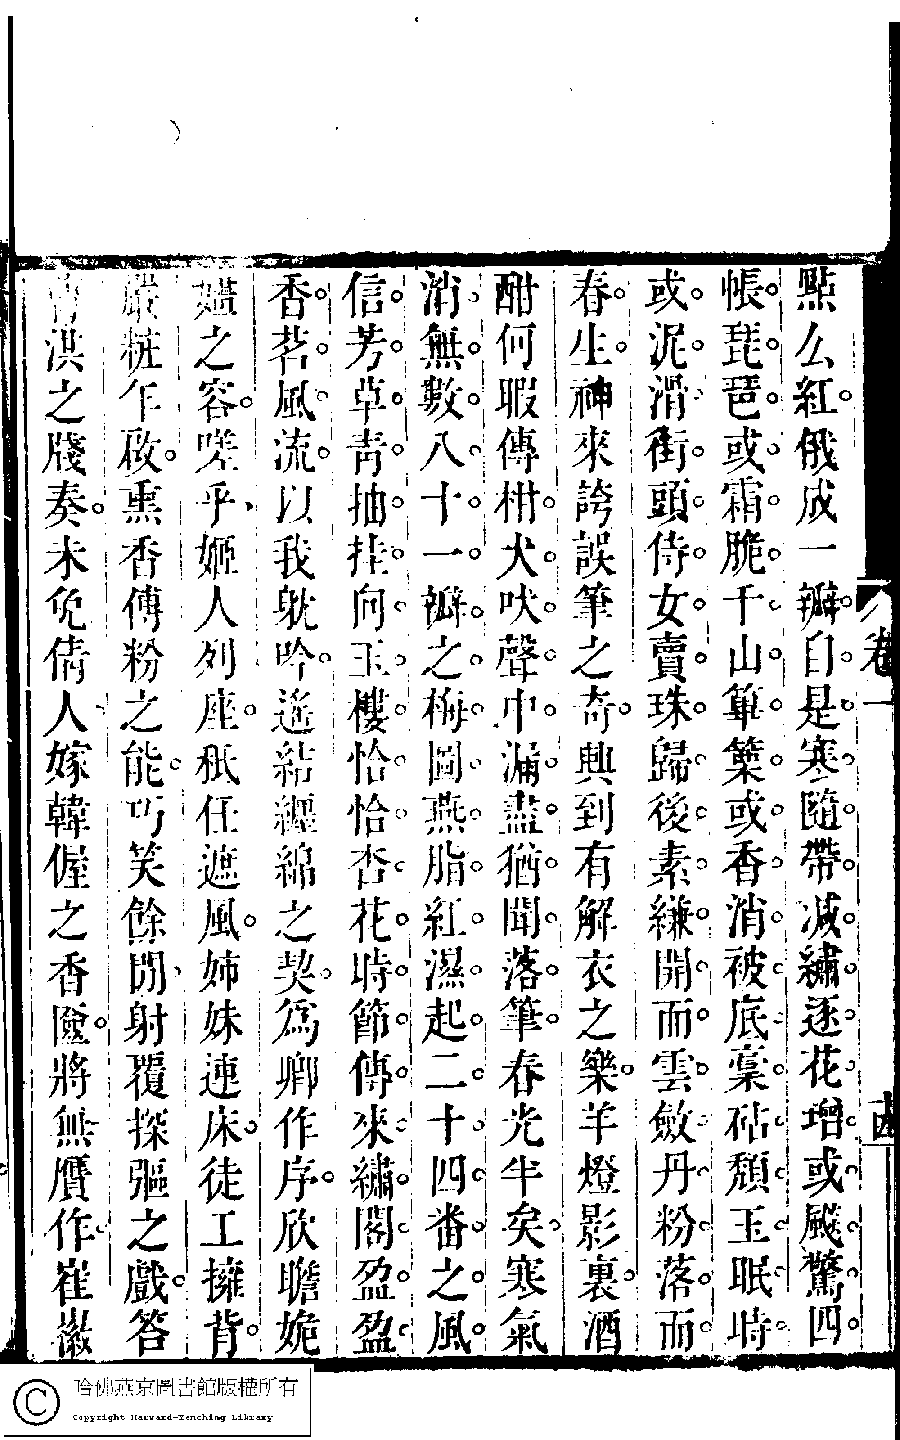 點么紅俄成一瓣自是寒隨帶减繡逐花增或颸驚四
帳琵琶或霜脆千山篳篥或香消被底藁砧頽玉眠時
或泥滑街頭侍女賣珠歸後素縑開而雲斂丹粉落而
春生神來誇誤筆之奇興到有解衣之樂羊燈影裏酒
酣何暇傳柑犬吠聲中漏盡猶聞落筆春光半矣寒氣
消無數八十一瓣之梅圖燕脂紅濕起二十四番之風
信芳草靑抽拄向玉樓恰恰杏花時節傳來繡閣盈盈
香茗風流以我躭吟遥結纒綿之契爲卿作序欣瞻姽
嫿之容嗟乎姬人列座秖任遮風姉妹連床徒工擁背
嚴粧乍改熏香傅粉之能巧笑餘閒射覆探彄之戲答
曹洪之牋奏未免倩人嫁韓偓之香匳將無贋作崔徽
卷一
古
哈佛燕京圖書館版權所有
Copyright Harvard-Yenching Library